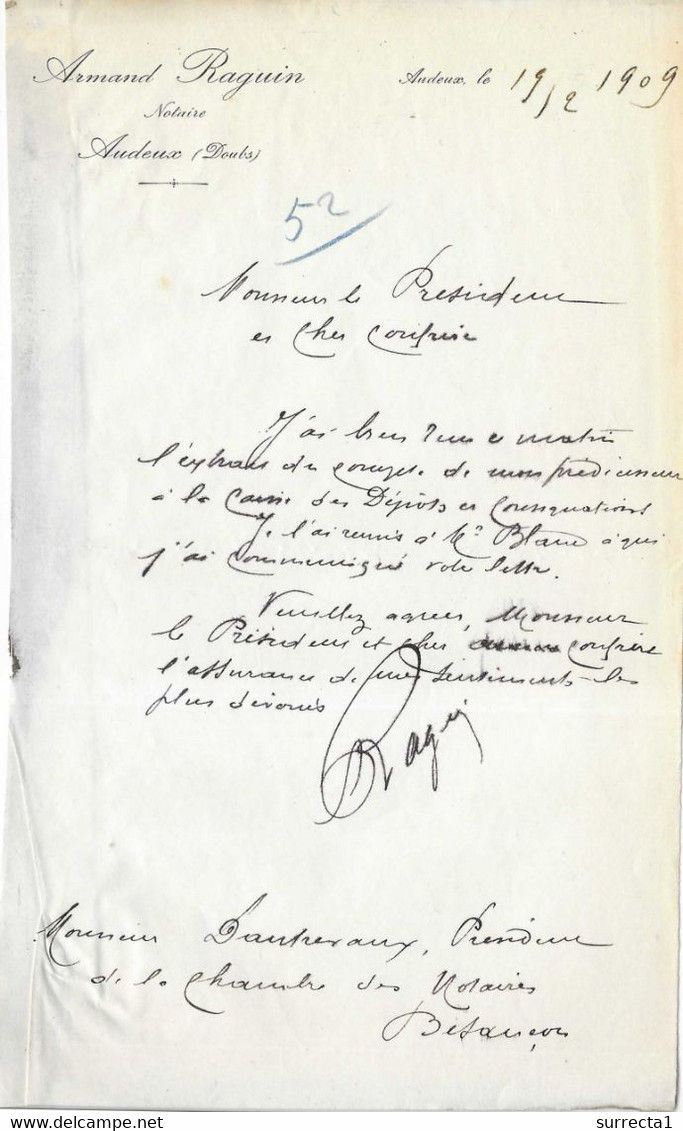 Armand Raguin
Notaire
Audeux (Doubs)
Audeux, le 19/2 1909
52
Monsieur le Président
et Cher Confrère
J'ai bien reçu ce matin
l'extrait du compte de mon prédécesseur
à la Caisse des Dépôts et Consignations
Je l'ai remis à Mr Blanc à qui
j'ai communiqué votre lettre.
Veuillez agréer, Monsieur
le Président et cher confrère
l'assurance de mes sentiments les
plus dévoués
Raguin
Monsieur Dautrevaux, Président
de la Chambre des Notaires
Besançon
surrecta1